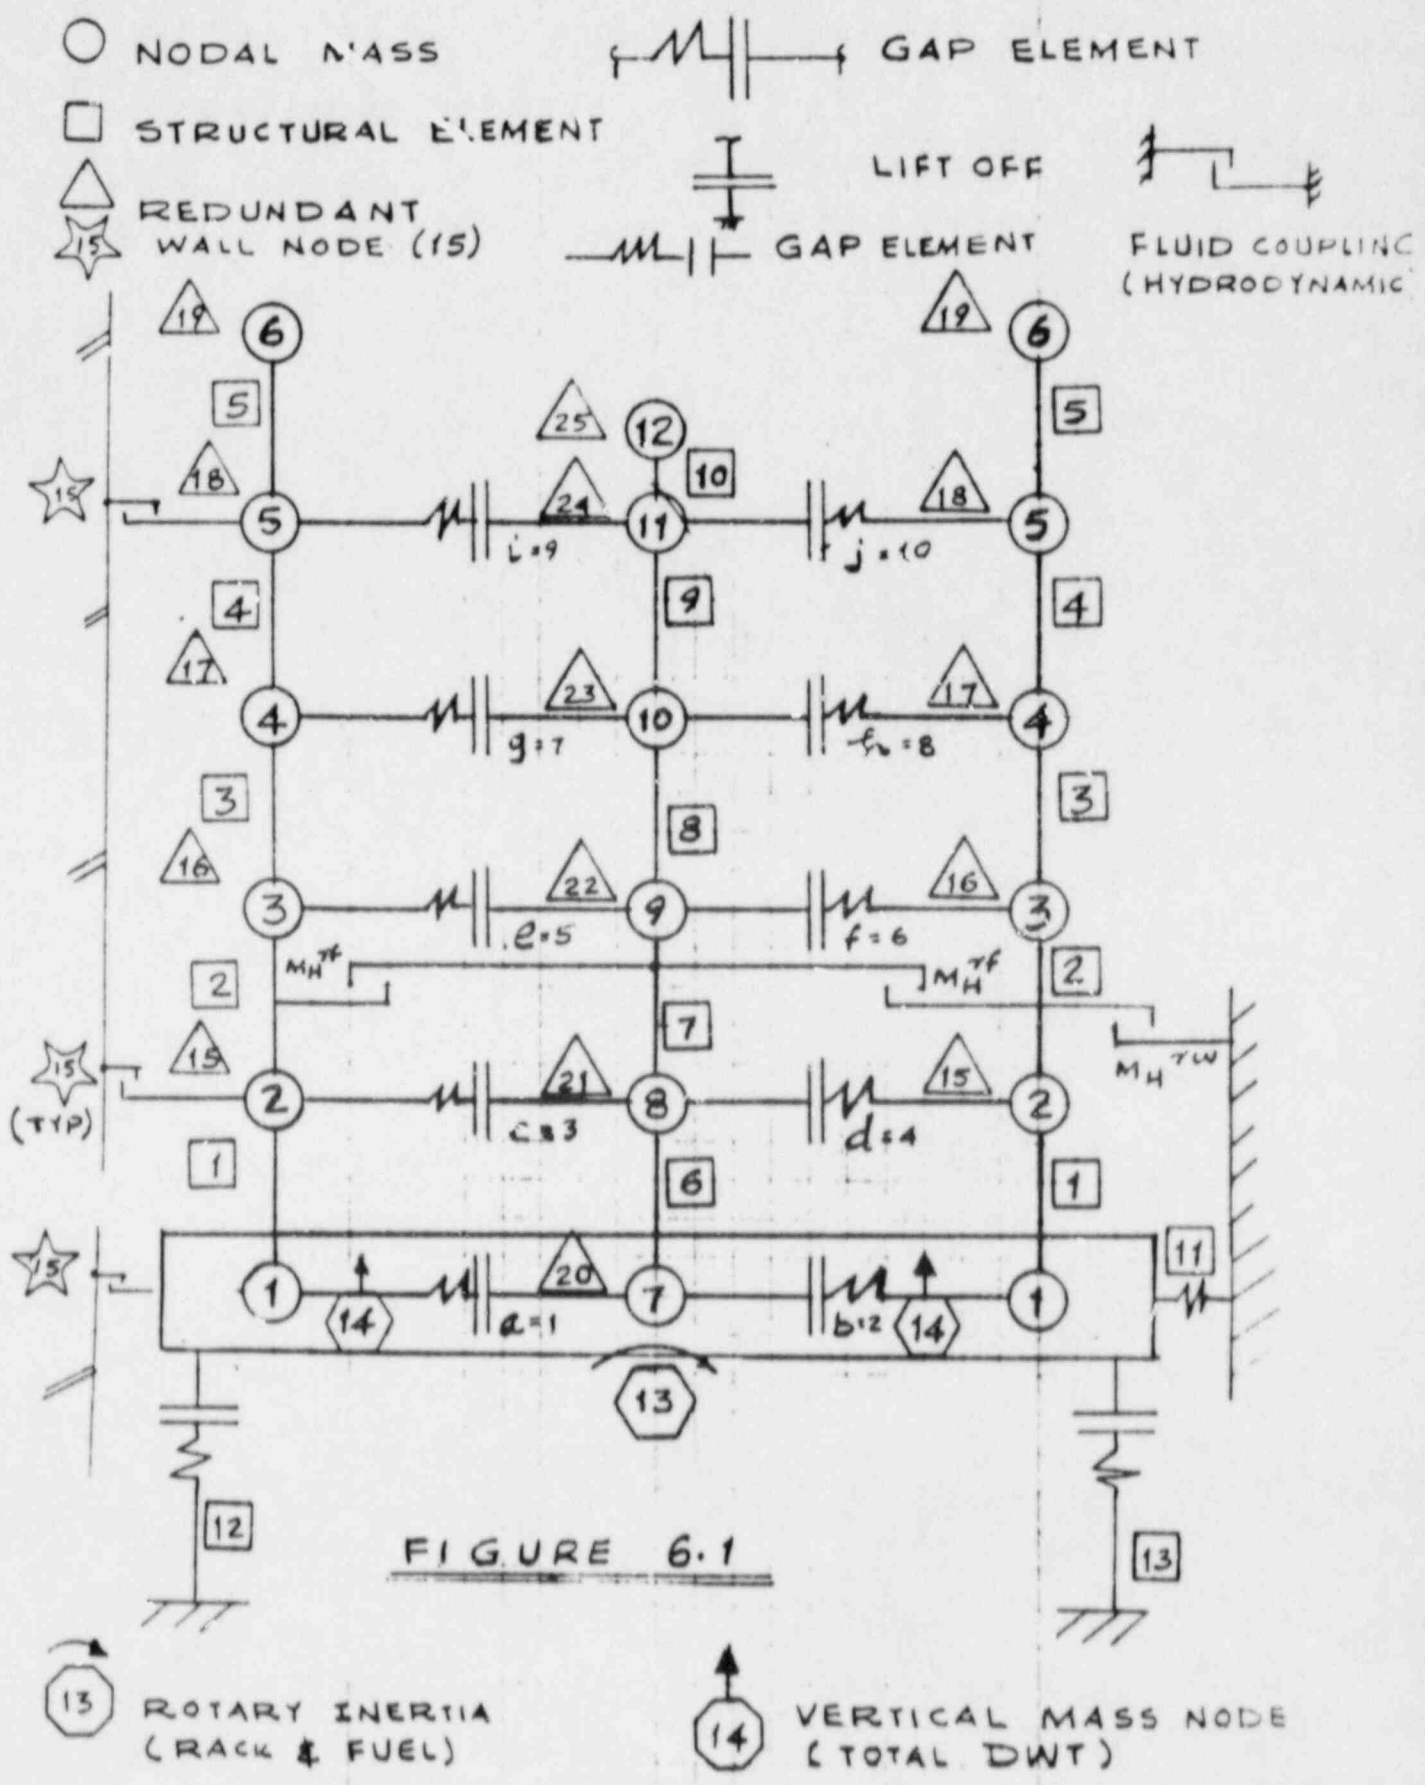 NODAL MASS
GAP ELEMENT
STRUCTURAL ELEMENT
LIFT OFF
REDUNDANT
15 WALL NODE (15)
GAP ELEMENT
FLUID COUPLING
(HYDRODYNAMIC
19 6 19 6
5 5
25 12
10
15 18 18
5 24 11 5
i=9 j=10
4 9 4
17 23 17
4 10 4
g=7 h=8
3 8 3
16 22 16
3 9 3
e=5 f=6
M_H^rf M_H^rf
2 2
7
M_H^rw
15 15 21 15
2 8 2
(TYP)
c=3 d=4
1 6 1
15 11
1 20 7 1
14 a=1 b=2 14
13
12
13
FIGURE 6.1
13 ROTARY INERTIA
(RACK & FUEL)
14 VERTICAL MASS NODE
(TOTAL DWT)